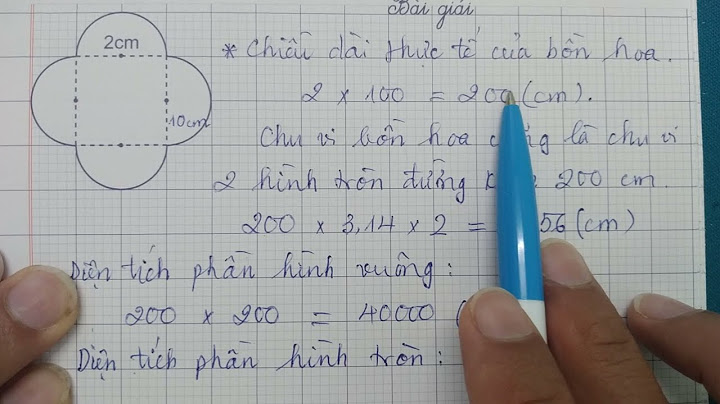 Bài giải
2cm
* Chiều dài thực tế của bồn hoa.
2 × 100 = 200 (cm).
10cm
Chu vi bồn hoa là chu vi
2 hình tròn đường 200 cm.
200 × 3,14 × 2 = 56 (cm)
Diện tích phần hình vuông:
200 × 200 = 40000 (
Diện tích phần hình tròn: